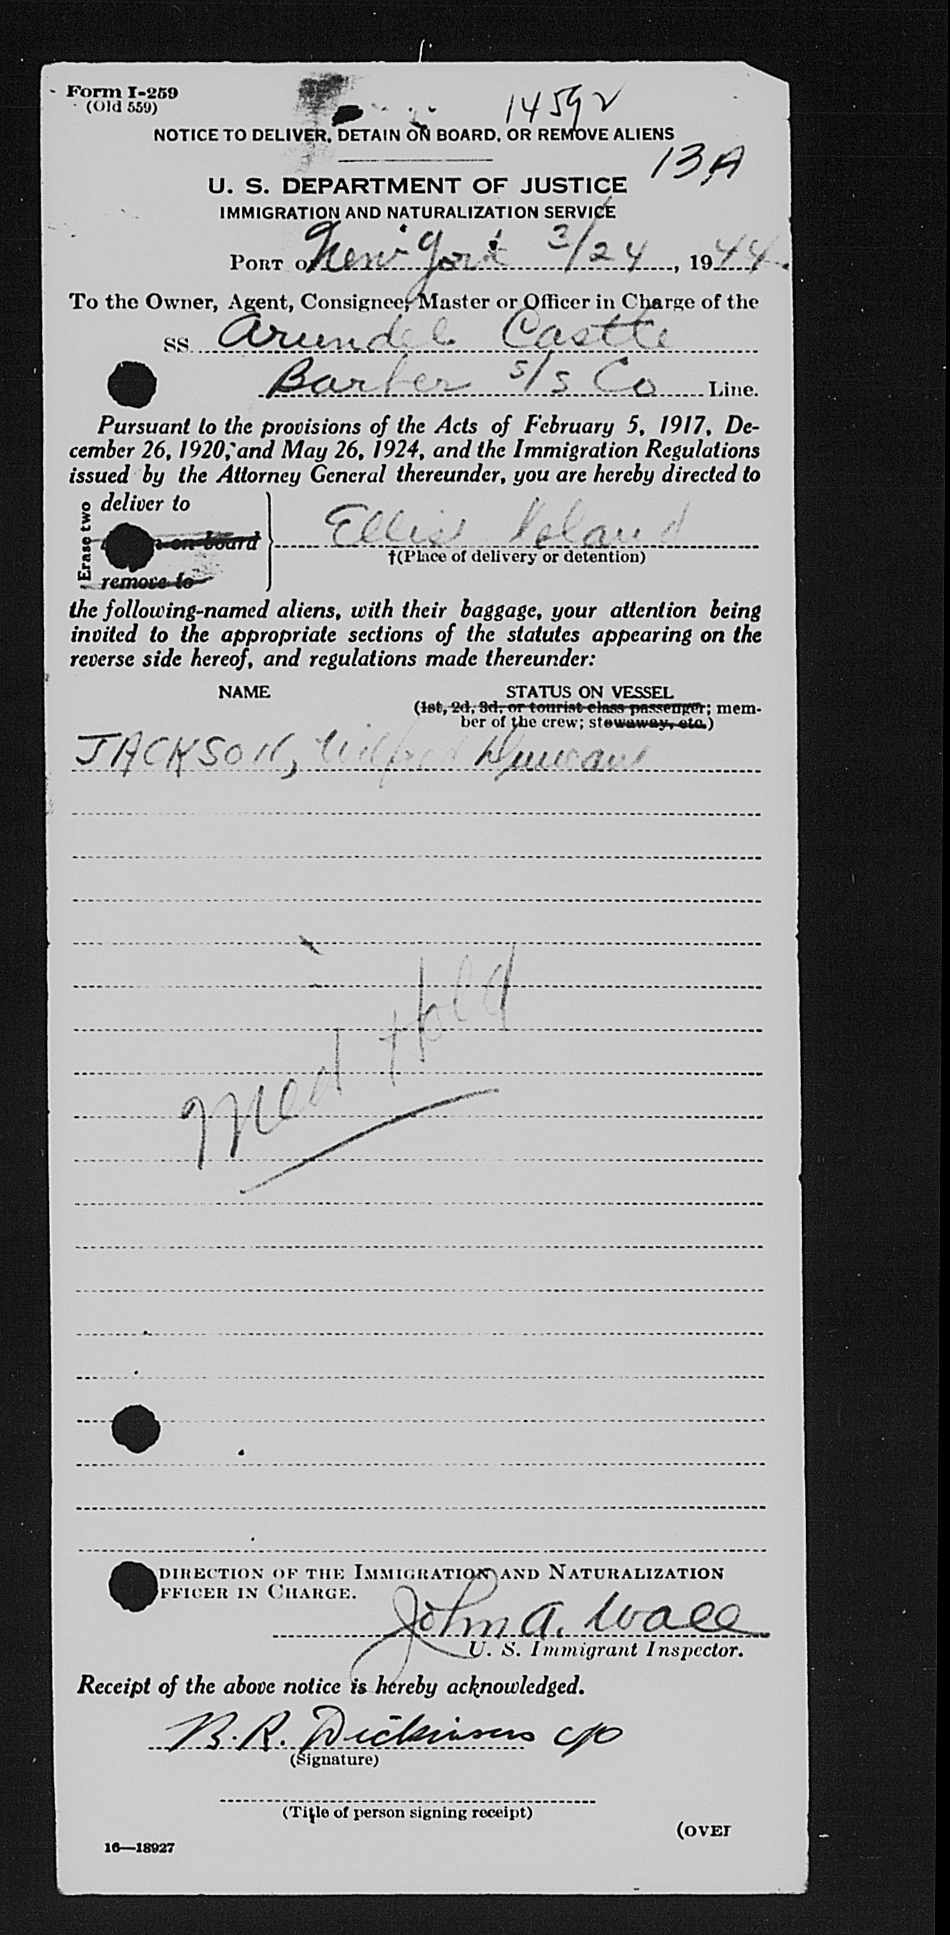 Form I-259
(Old 559)
14592
NOTICE TO DELIVER, DETAIN ON BOARD, OR REMOVE ALIENS
13A
U. S. DEPARTMENT OF JUSTICE
IMMIGRATION AND NATURALIZATION SERVICE
PORT of New York 3/24, 1944.
To the Owner, Agent, Consignee, Master or Officer in Charge of the
SS. Arundel Castle
Barber S/S Co Line.
Pursuant to the provisions of the Acts of February 5, 1917, De-
cember 26, 1920, and May 26, 1924, and the Immigration Regulations
issued by the Attorney General thereunder, you are hereby directed to
Erase two
deliver to
on board
remove to
Ellis Island
†(Place of delivery or detention)
the following-named aliens, with their baggage, your attention being
invited to the appropriate sections of the statutes appearing on the
reverse side hereof, and regulations made thereunder:
NAME STATUS ON VESSEL
(1st, 2d, 3d, or tourist class passenger; mem-
ber of the crew; stowaway, etc.)
JACKSON, Wilfred
Med Hold
DIRECTION OF THE IMMIGRATION AND NATURALIZATION
FFICER IN CHARGE.
John A. Wall
U. S. Immigrant Inspector.
Receipt of the above notice is hereby acknowledged.
B. R. Dickinson c/o
(Signature)
(Title of person signing receipt)
(OVER
16—18927